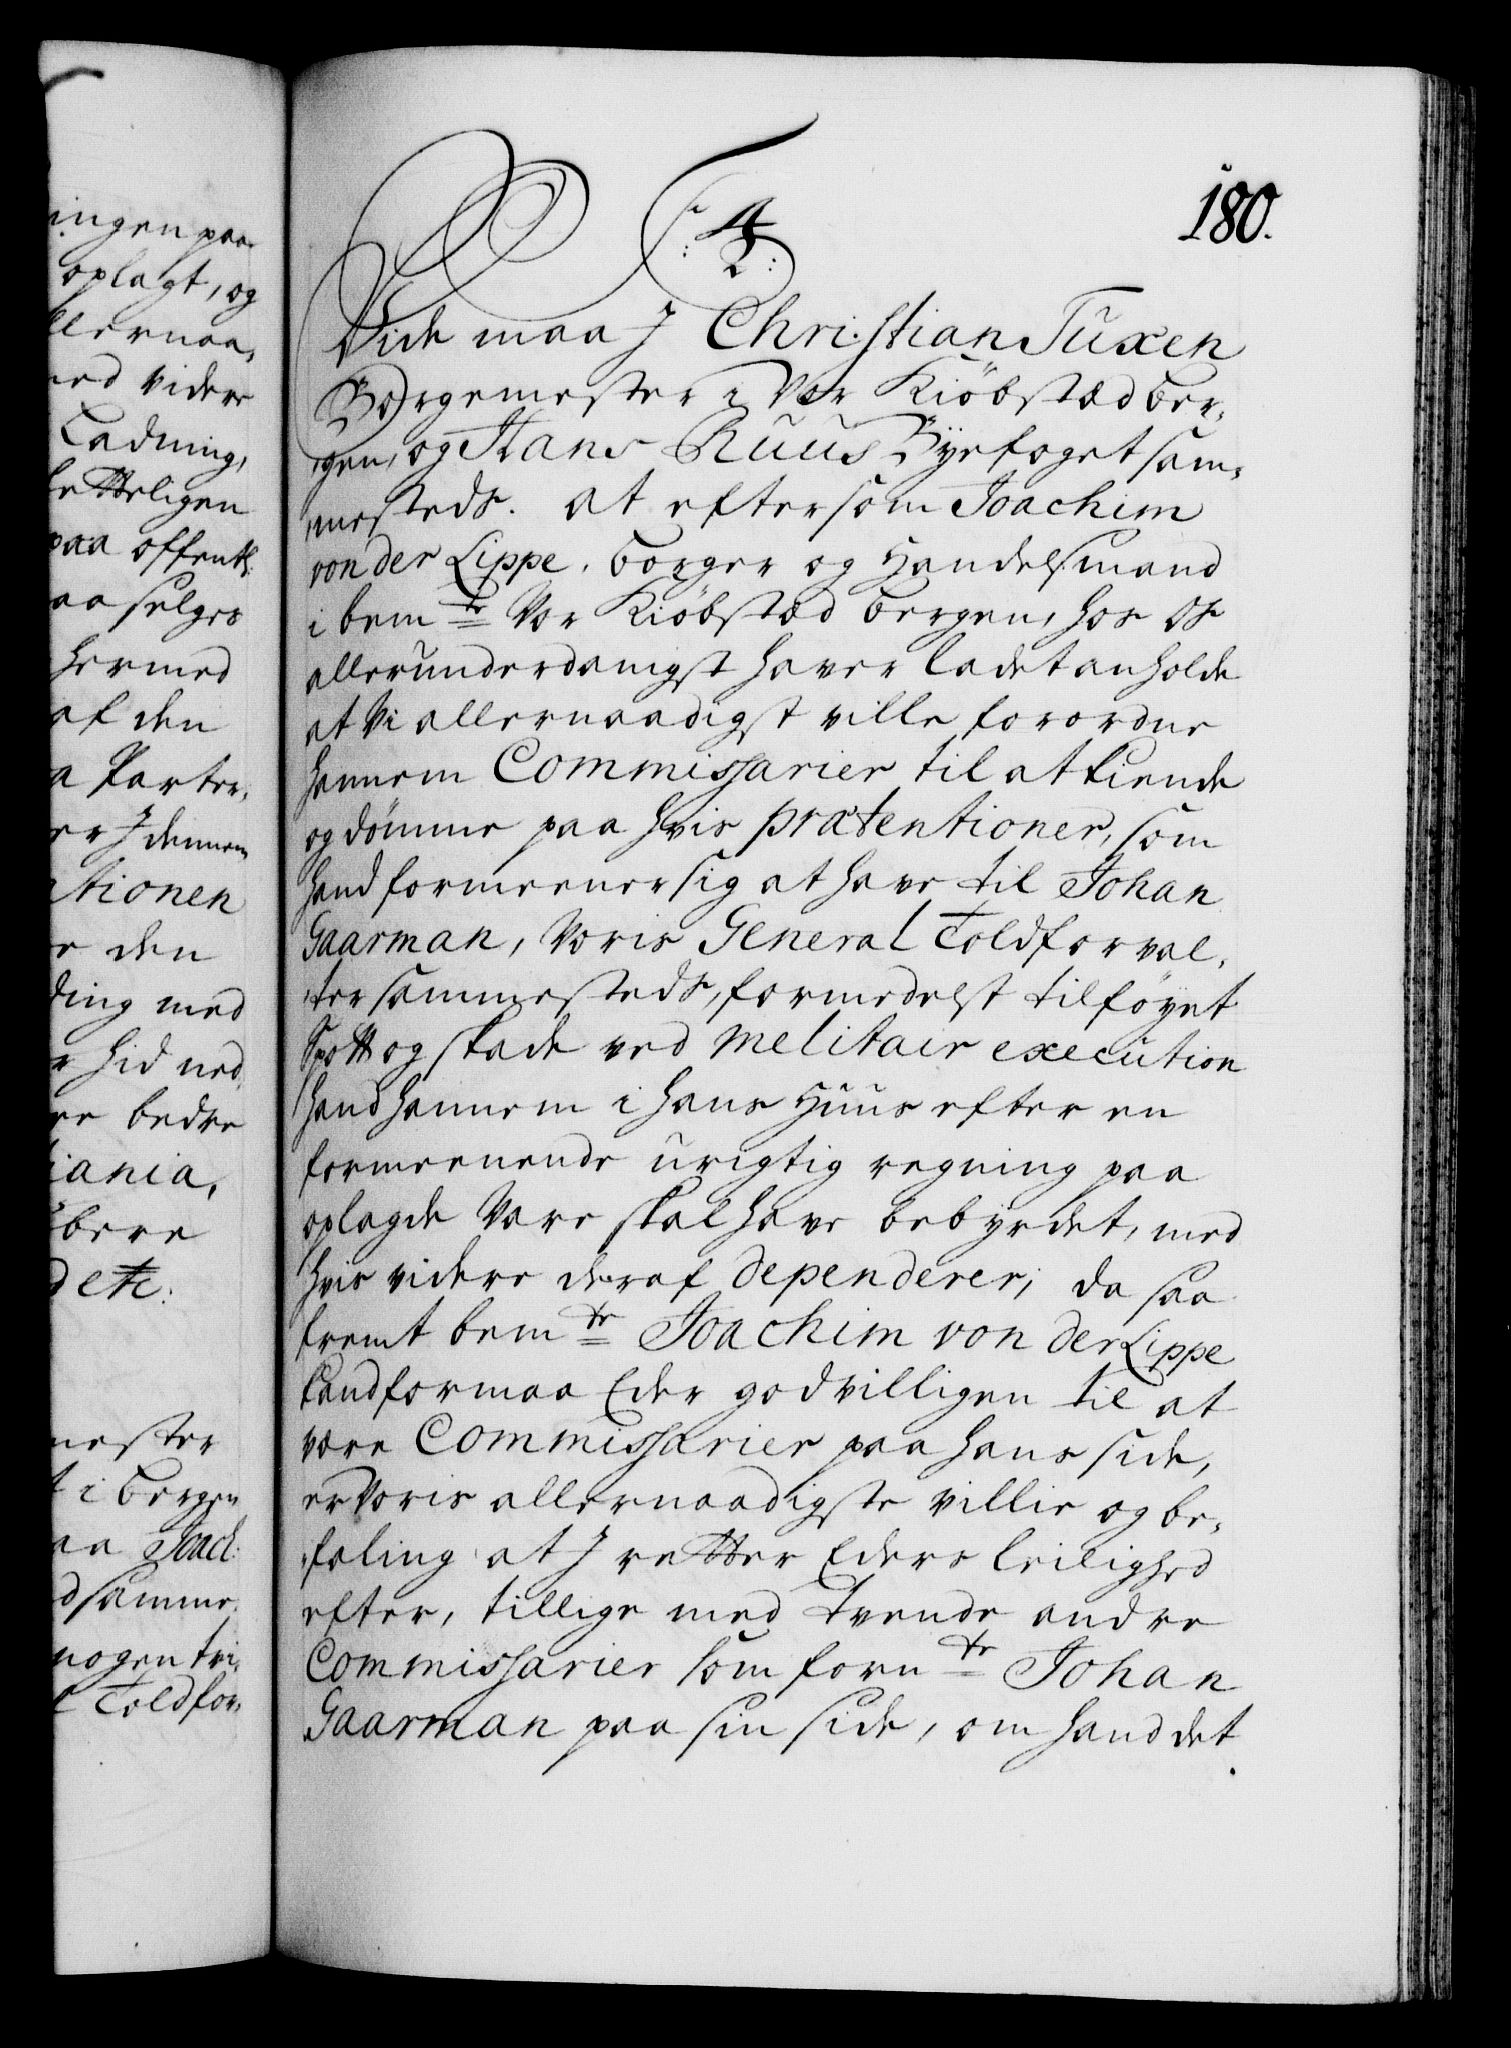 ingen paa
oplagt, og
llernaa,
ned videre
Ladning,
setteligen
paa offentl:
aa selges
hermed
af den
a Parter,
er J dennem
ationen
e den
ding med
r hid ned,
re bedre
iania,
bere
d etc:
mester
t i Bergen
aa Joach:
d samme,
nogen tri,
l Toldfor,
180.
F 4
Vide maa J Christian Tuxen
Borgemester i Vor Kiöbstæd Ber,
gen, og Hans Ruus Byefoget sam,
mesteds. At eftersom Joachim
von der Lippe, borger og Handelsmand
i bem.te Vor Kiöbstæd Bergen, hos Os
allerunderdanigst haver ladet anholde
at Vi allernaadigst ville forordne
hannem Commissarier til at kiende
og dømme paa hvis prætentioner, som
hand formeener sig at have til Johan
Gaarman, Voris General Toldforval,
ter sammesteds, formedelst tilføyet
Spott og skade ved melitair execution
hand hannem i hans Huus efter en
formeenende urigtig regning paa
oplagde Vare skal have bebyrdet, med
hvis videre deraf dependerer; da saa
fremt bem.te Joachim von der Lippe
kand formaa Eder godvilligen til at
være Commissarier paa hans side,
er Voris allernaadigste villie og be,
faling at J retter Eders leilighed
efter, tillige med tvende andre
Commissarier som forn.te Johan
Gaarman paa sin side, om hand det